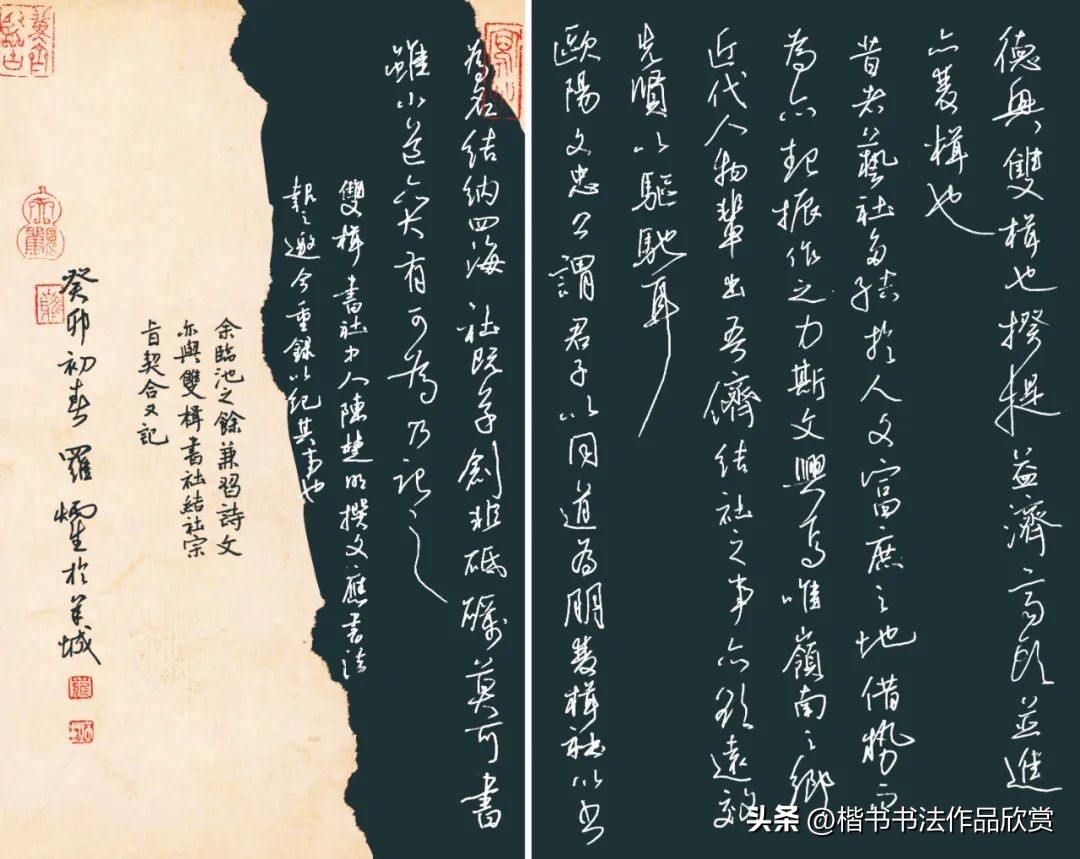 德與雙楫也揆提並濟高師並進
亦雙楫也
昔者藝社多結於人文富庶之地借勢而
為亦起振作之力斯文興焉唯嶺南之鄉
近代人物輩出吾儕結社之事亦欲遠效
先賢以驅馳耳
歐陽文忠公謂君子以同道為朋雙楫社以書
為名結納四海社既草創非砥礪莫可書
雖小道亦大有可為乃記之
雙楫書社中人陳楚明撰文應書法
報之邀今重錄以紀其事也
余臨池之餘兼習詩文
亦與雙楫書社結社宗
旨契合又記
癸卯初春 羅於羊城
头条 @楷书书法作品欣赏